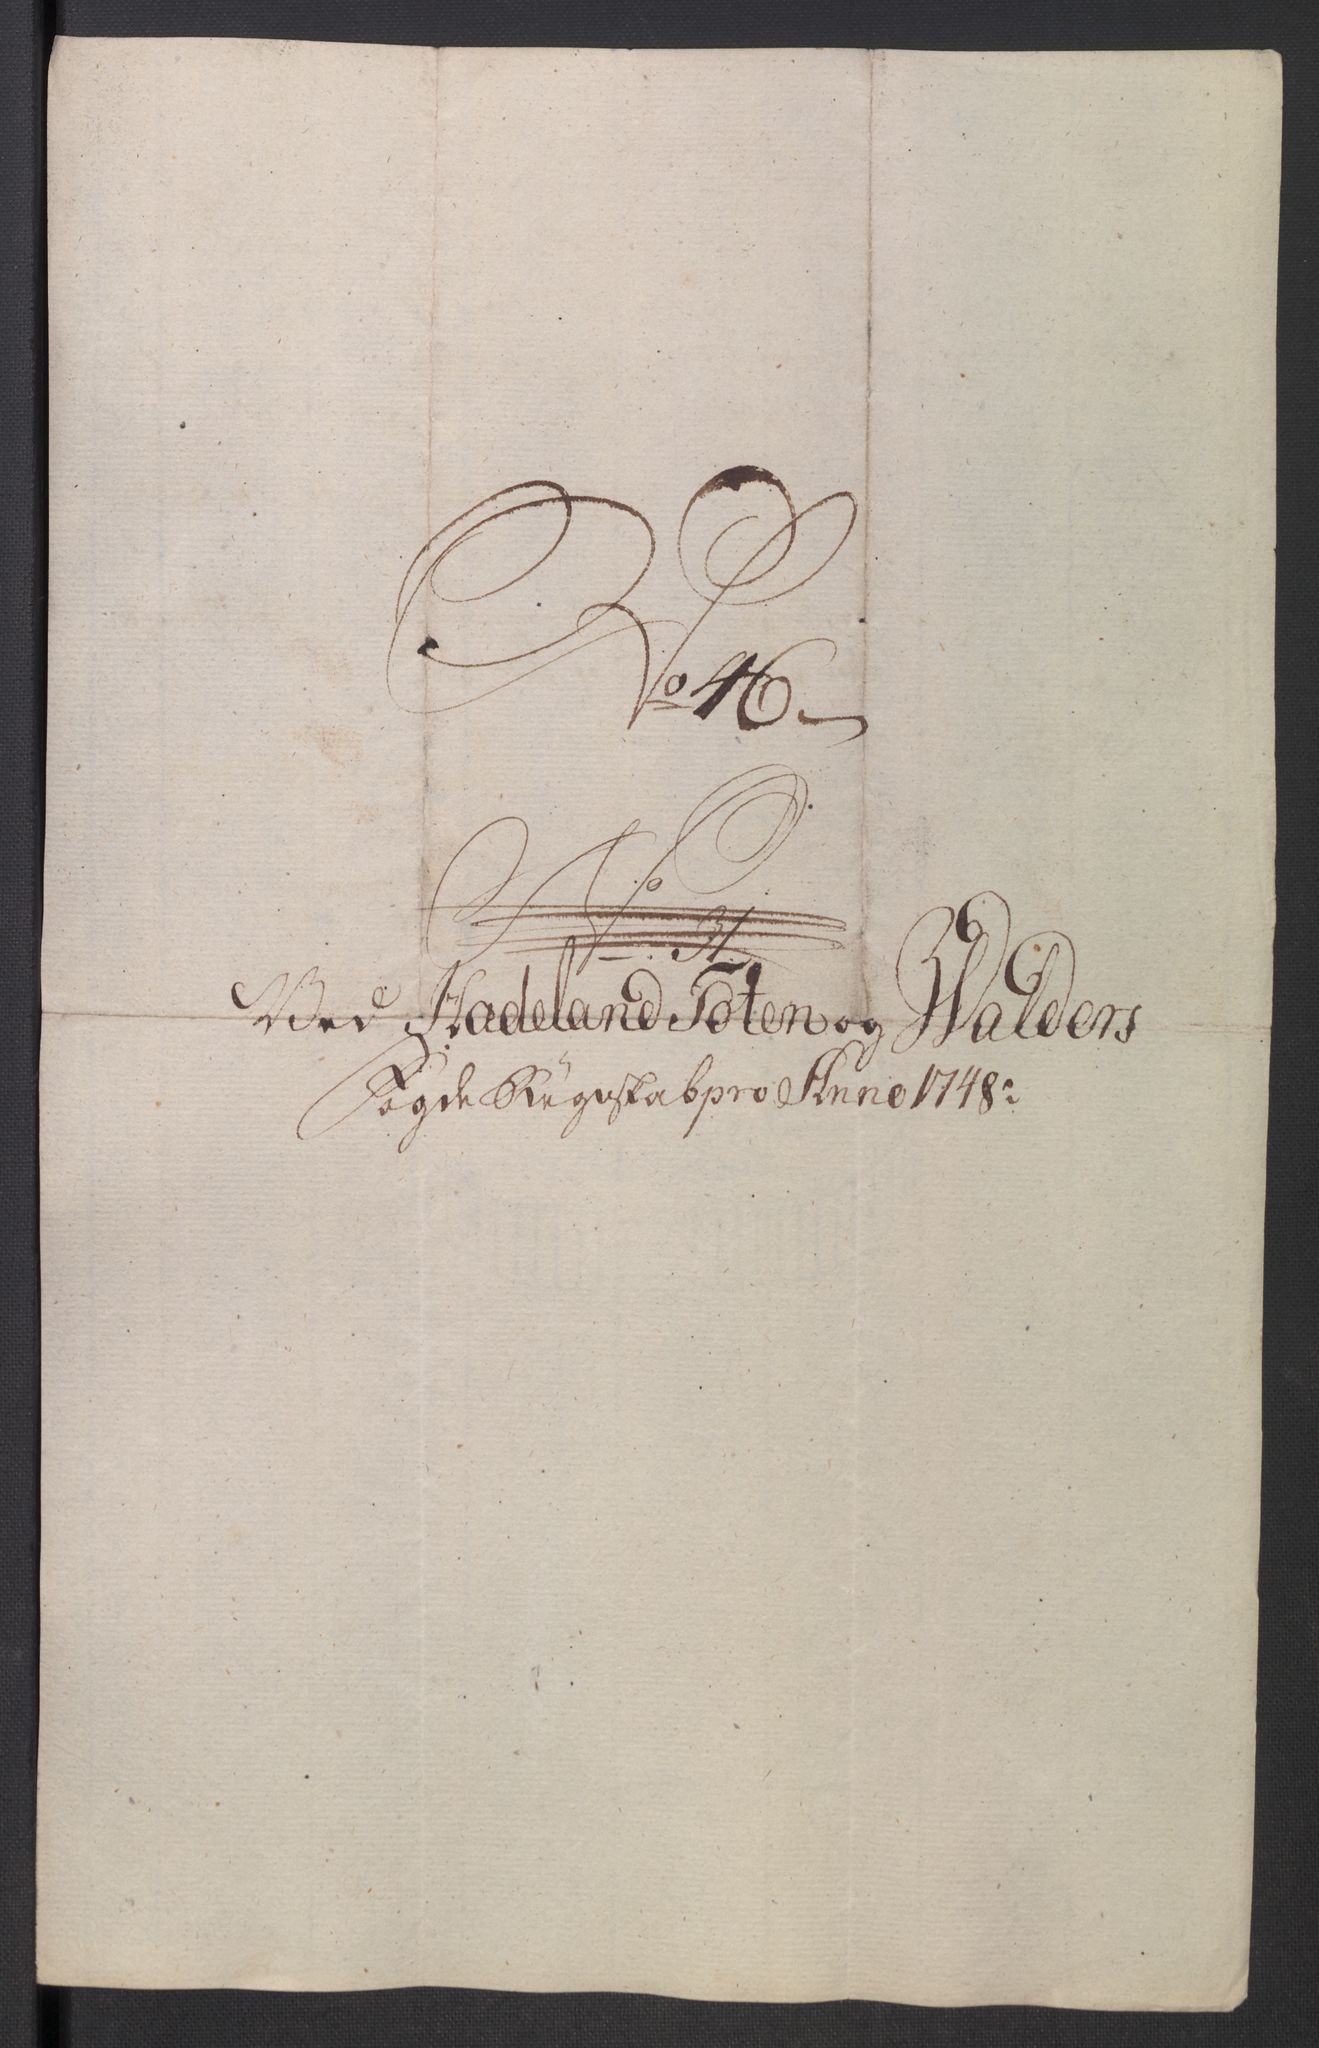 No 46
No 31.
Ved Hadeland Toten og Walders
Fogde Regnskab pro Anno 1748: